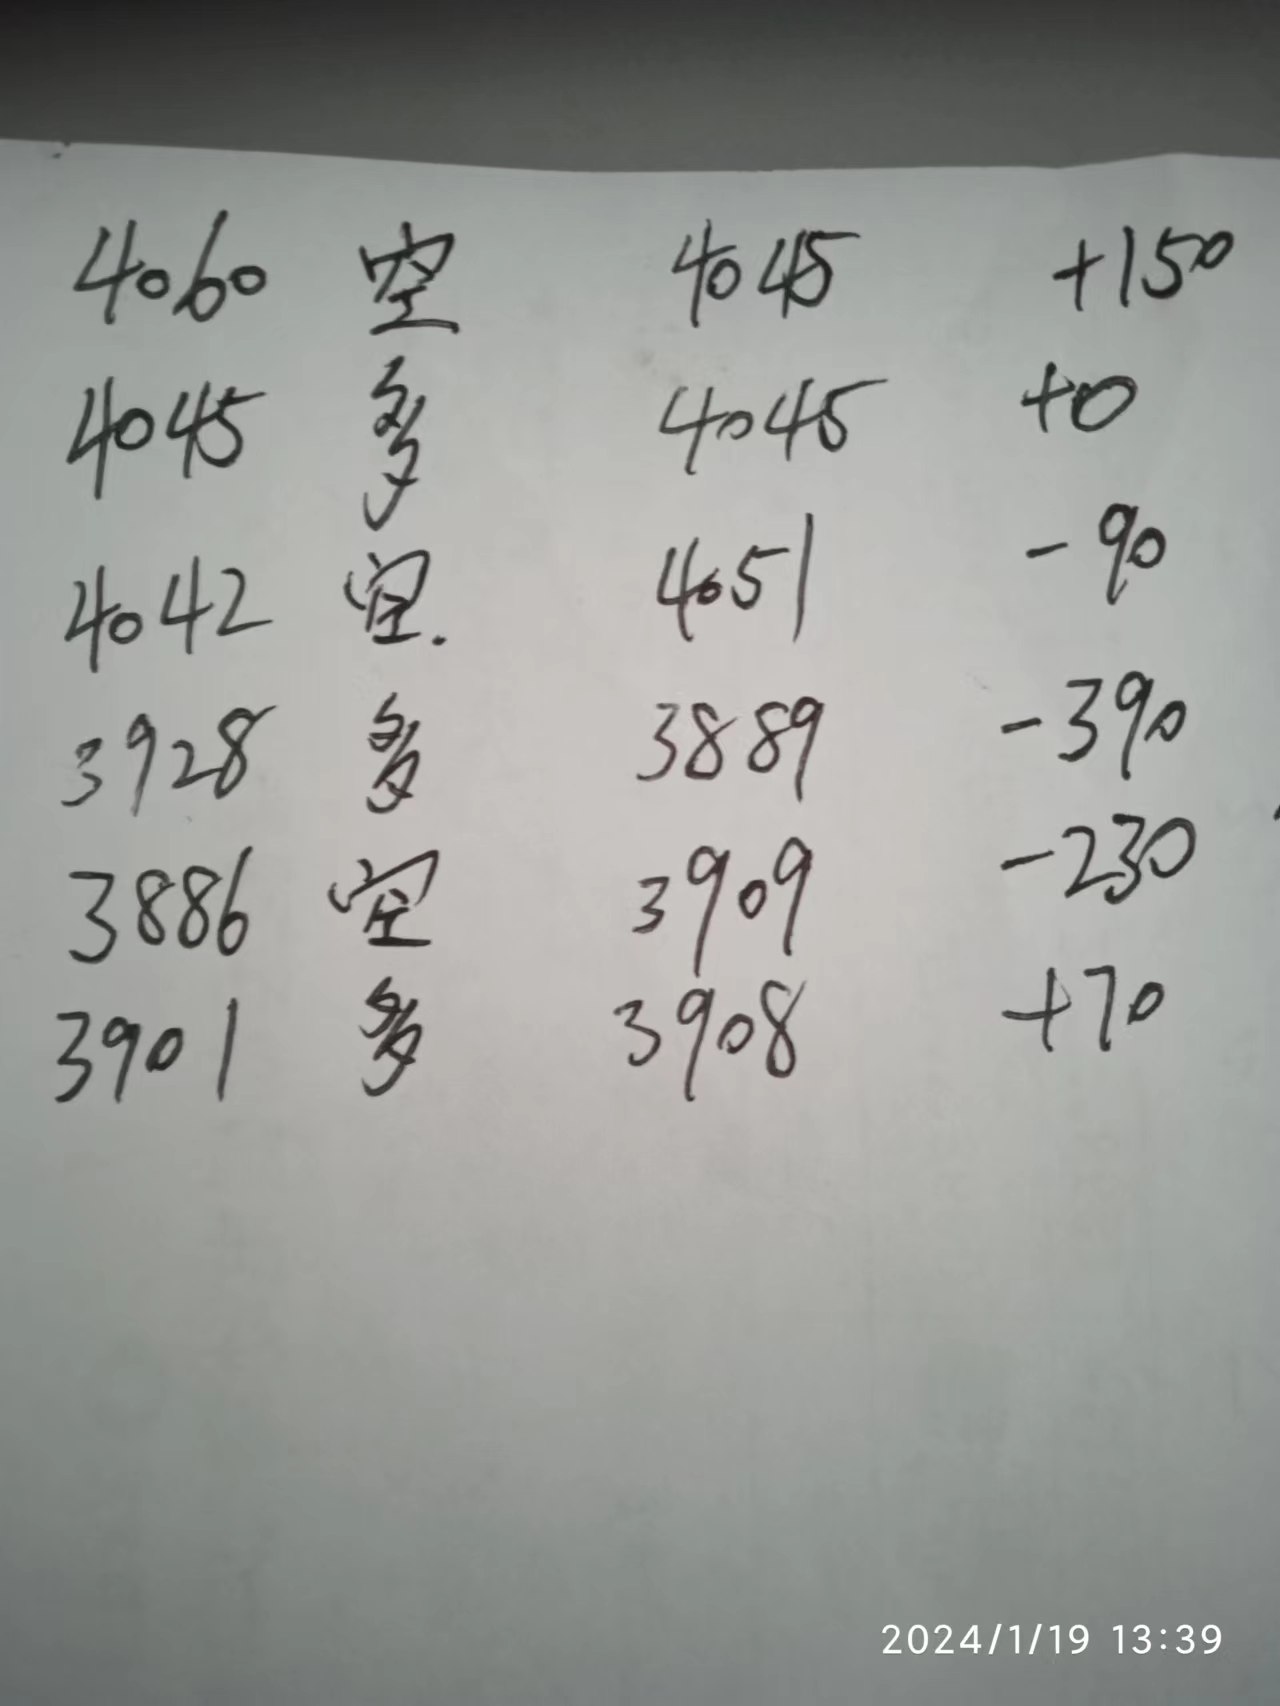 4060 空 4045 +150
4045 多 4045 +0
4042 空. 4051 -90
3928 多 3889 -390
3886 空 3909 -230
3901 多 3908 +70
2024/1/19 13:39